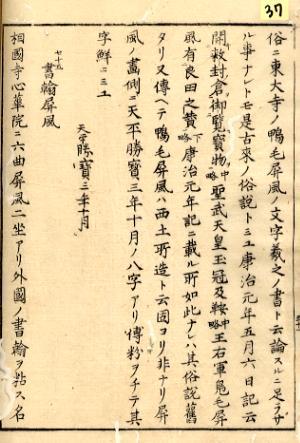 37
俗ニ東大寺ノ鴨毛屏風ノ文字羲之ノ書ト云論スルニ足ラザ
ル事ナレトモ是古来ノ俗説トミユ康治元年五月六日記云
開数封倉御覧寳物中略聖武天皇玉冠及鞍中略王右軍鳧毛屏
風有良田之賛下略康治元年記ニ載ル所如此ナレハ其俗説舊
タリ又傳ヘテ鴨毛屏風ハ西土所造ト云固ヨリ非ナリ屏
風ノ畫側ニ天平勝寳三年十月ノ八字アリ傅粉ヲチテ其
字鮮ニミユ
天平勝寳三年十月
七十五
書翰屏風
相國寺心華院ニ六曲屏風二坐アリ外國ノ書翰ヲ粘ス名